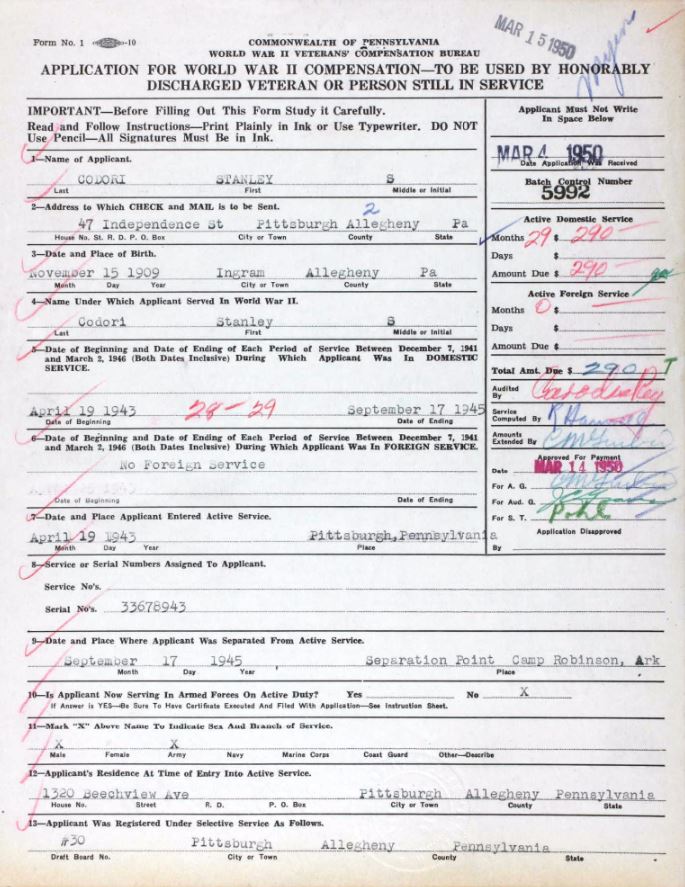 MAR 15 1950
Form No. 1 -10
COMMONWEALTH OF PENNSYLVANIA
WORLD WAR II VETERANS' COMPENSATION BUREAU
APPLICATION FOR WORLD WAR II COMPENSATION—TO BE USED BY HONORABLY
DISCHARGED VETERAN OR PERSON STILL IN SERVICE
IMPORTANT—Before Filling Out This Form Study it Carefully.
Read and Follow Instructions—Print Plainly in Ink or Use Typewriter. DO NOT
Use Pencil—All Signatures Must Be in Ink.
Applicant Must Not Write
In Space Below
MAR 4 1950
Date Application Was Received
Batch Control Number
5992
1—Name of Applicant.
CODORI STANLEY S
Last First Middle or Initial
2—Address to Which CHECK and MAIL is to be Sent.
2
47 Independence St Pittsburgh Allegheny Pa
House No. St. R. D. P. O. Box City or Town County State
Active Domestic Service
Months 29 $ 290—
Days $
Amount Due $ 290—
3—Date and Place of Birth.
November 15 1909 Ingram Allegheny Pa
Month Day Year City or Town County State
Active Foreign Service
Months 0 $
Days $
Amount Due $
4—Name Under Which Applicant Served In World War II.
Codori Stanley S
Last First Middle or Initial
5—Date of Beginning and Date of Ending of Each Period of Service Between December 7, 1941
and March 2, 1946 (Both Dates Inclusive) During Which Applicant Was In DOMESTIC
SERVICE.
Total Amt. Due $ 290
Audited
By
April 19 1943 28—29 September 17 1945
Date of Beginning Date of Ending
Service
Computed By
Amounts
Extended By
6—Date of Beginning and Date of Ending of Each Period of Service Between December 7, 1941
and March 2, 1946 (Both Dates Inclusive) During Which Applicant Was In FOREIGN SERVICE.
No Foreign Service
Date of Beginning Date of Ending
Approved For Payment
Date MAR 14 1950
For A. G.
For Aud. G.
For S. T. Pohl
Application Disapproved
By
7—Date and Place Applicant Entered Active Service.
April 19 1943 Pittsburgh,Pennsylvania
Month Day Year Place
8—Service or Serial Numbers Assigned To Applicant.
Service No's.
Serial No's. 33678943
9—Date and Place Where Applicant Was Separated From Active Service.
September 17 1945 Separation Point Camp Robinson, Ark
Month Day Year Place
10—Is Applicant Now Serving In Armed Forces On Active Duty? Yes No X
If Answer is YES—Be Sure To Have Certificate Executed And Filed With Application—See Instruction Sheet.
11—Mark "X" Above Name To Indicate Sex And Branch of Service.
X X
Male Female Army Navy Marine Corps Coast Guard Other—Describe
12—Applicant's Residence At Time of Entry Into Active Service.
1320 Beechview Ave Pittsburgh Allegheny Pennsylvania
House No. Street R. D. P. O. Box City or Town County State
13—Applicant Was Registered Under Selective Service As Follows.
#30 Pittsburgh Allegheny Pennsylvania
Draft Board No. City or Town County State